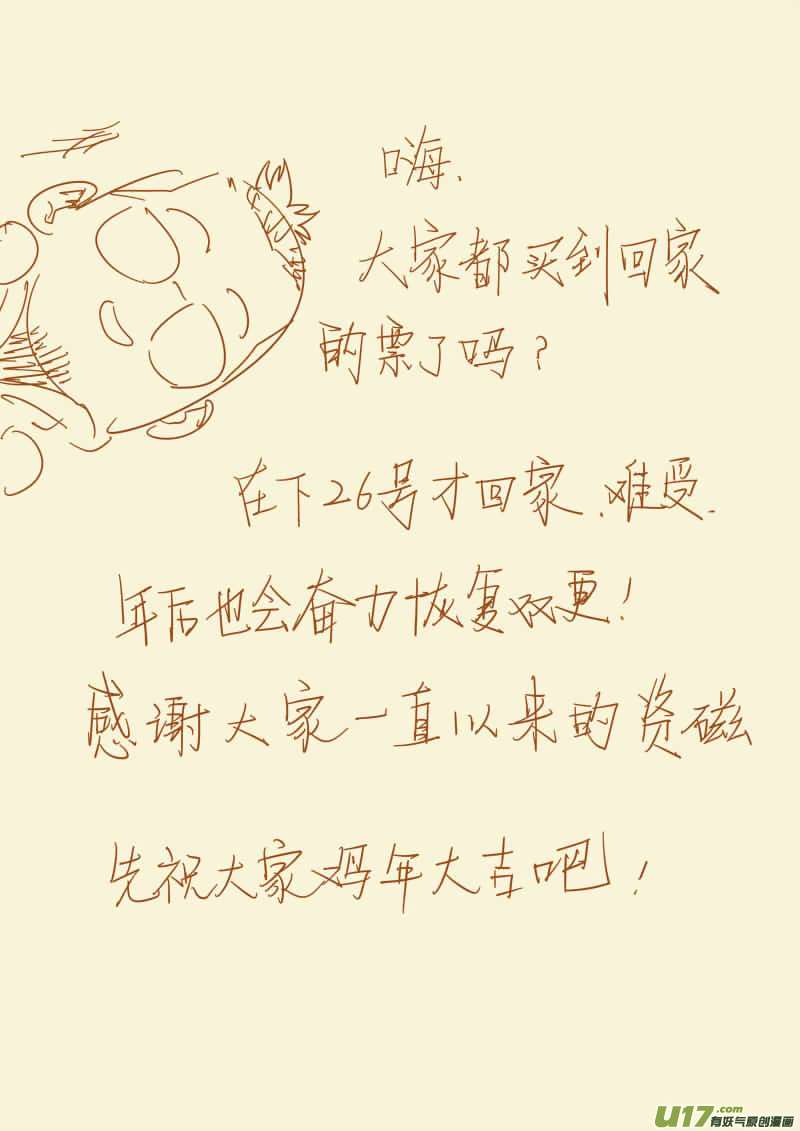 嗨.
大家都买到回家
的票了吗?
在下26号才回家.难受.
年后也会奋力恢复双更!
感谢大家一直以来的资磁
先祝大家鸡年大吉吧!
U17.com
有妖气原创漫画